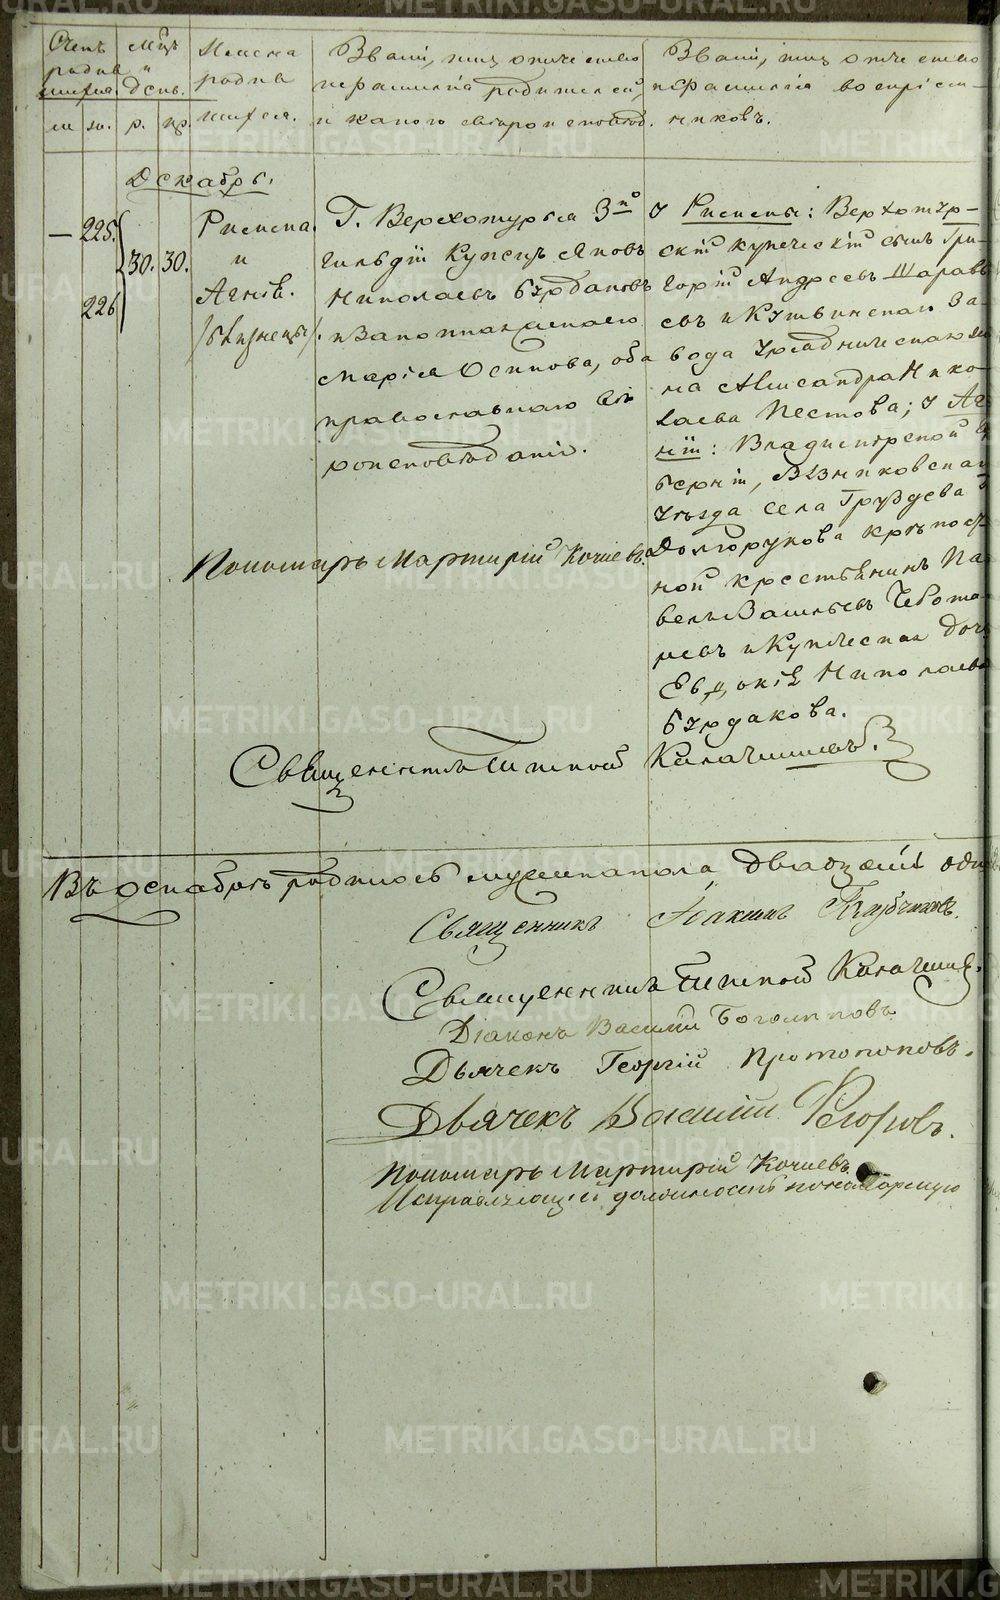 Счетъ
родив
шихся.
м. ж.
М-цъ
и
день.
р. кр.
Имена
родив
шихся.
Званіе, имя, отчество
и фамилія родителей,
и какого вѣроисповѣд.
Званіе, имя, отчество
и фамилія воспріем-
никовъ.
Декабрь.
— 225.
226
30. 30.
и
Агнія.
/близнецы/.
Г. Верхотурья 3й
гильдіи Купецъ Яковъ
Николаевъ Бурдаковъ
и законная его жена
Марія Осипова, оба
православнаго вѣ
роисповѣданія.
У : Верхотур-
скій купеческій сынъ Гри-
горій Андреевъ
евъ и Кушвинскаго за
вода Урядничья жена
Александра Нико
лаева Пестова; у Аг
ніи: Владимірской гу
берніи, Вязниковскаго
уѣзда села Груздева
Долгорукова крѣпост
ной крестьянинъ Па
велъ Васильевъ Чебота
ревъ и Купеческая дочь
Евдокія Николаева
Бурдакова.
Пономарь Мартирій Кочневъ.
Священникъ Калачниковъ.
Въ декабрѣ родилось мужска пола двадцать один
Священникъ Іоакимъ Трубчиковъ.
Священникъ Калачников.
Діаконъ Василій Боголѣповъ
Дьячекъ Георгій Протопоповъ.
Дьячекъ Василій Егоровъ.
Пономарь Мартирій Кочневъ
Исправляющій должность пономарскую
METRIKI.GASO-URAL.RU